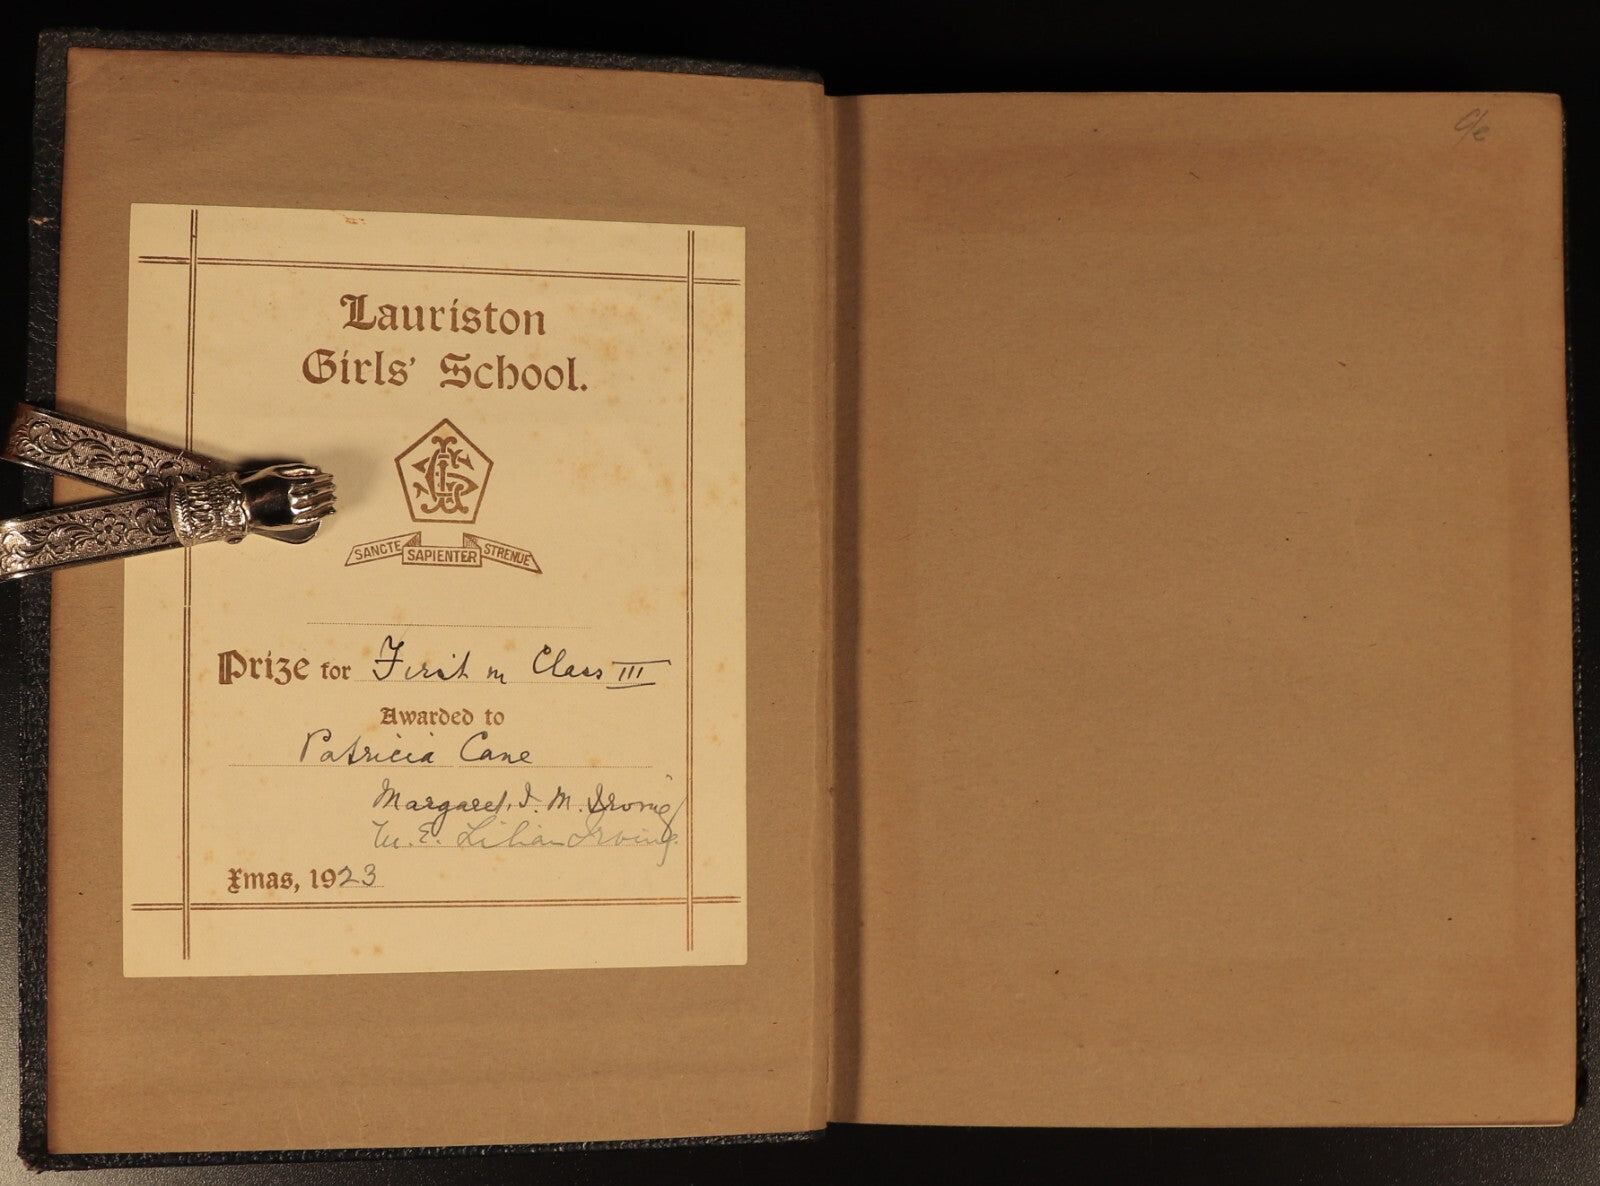 Lauriston
Girls' School.
LGS
SANCTE SAPIENTER STRENUE
Prize for First in Class III
Awarded to
Patricia Cane
Margaret I. M. Irving
M. E. Lilian Irving.
Xmas, 1923